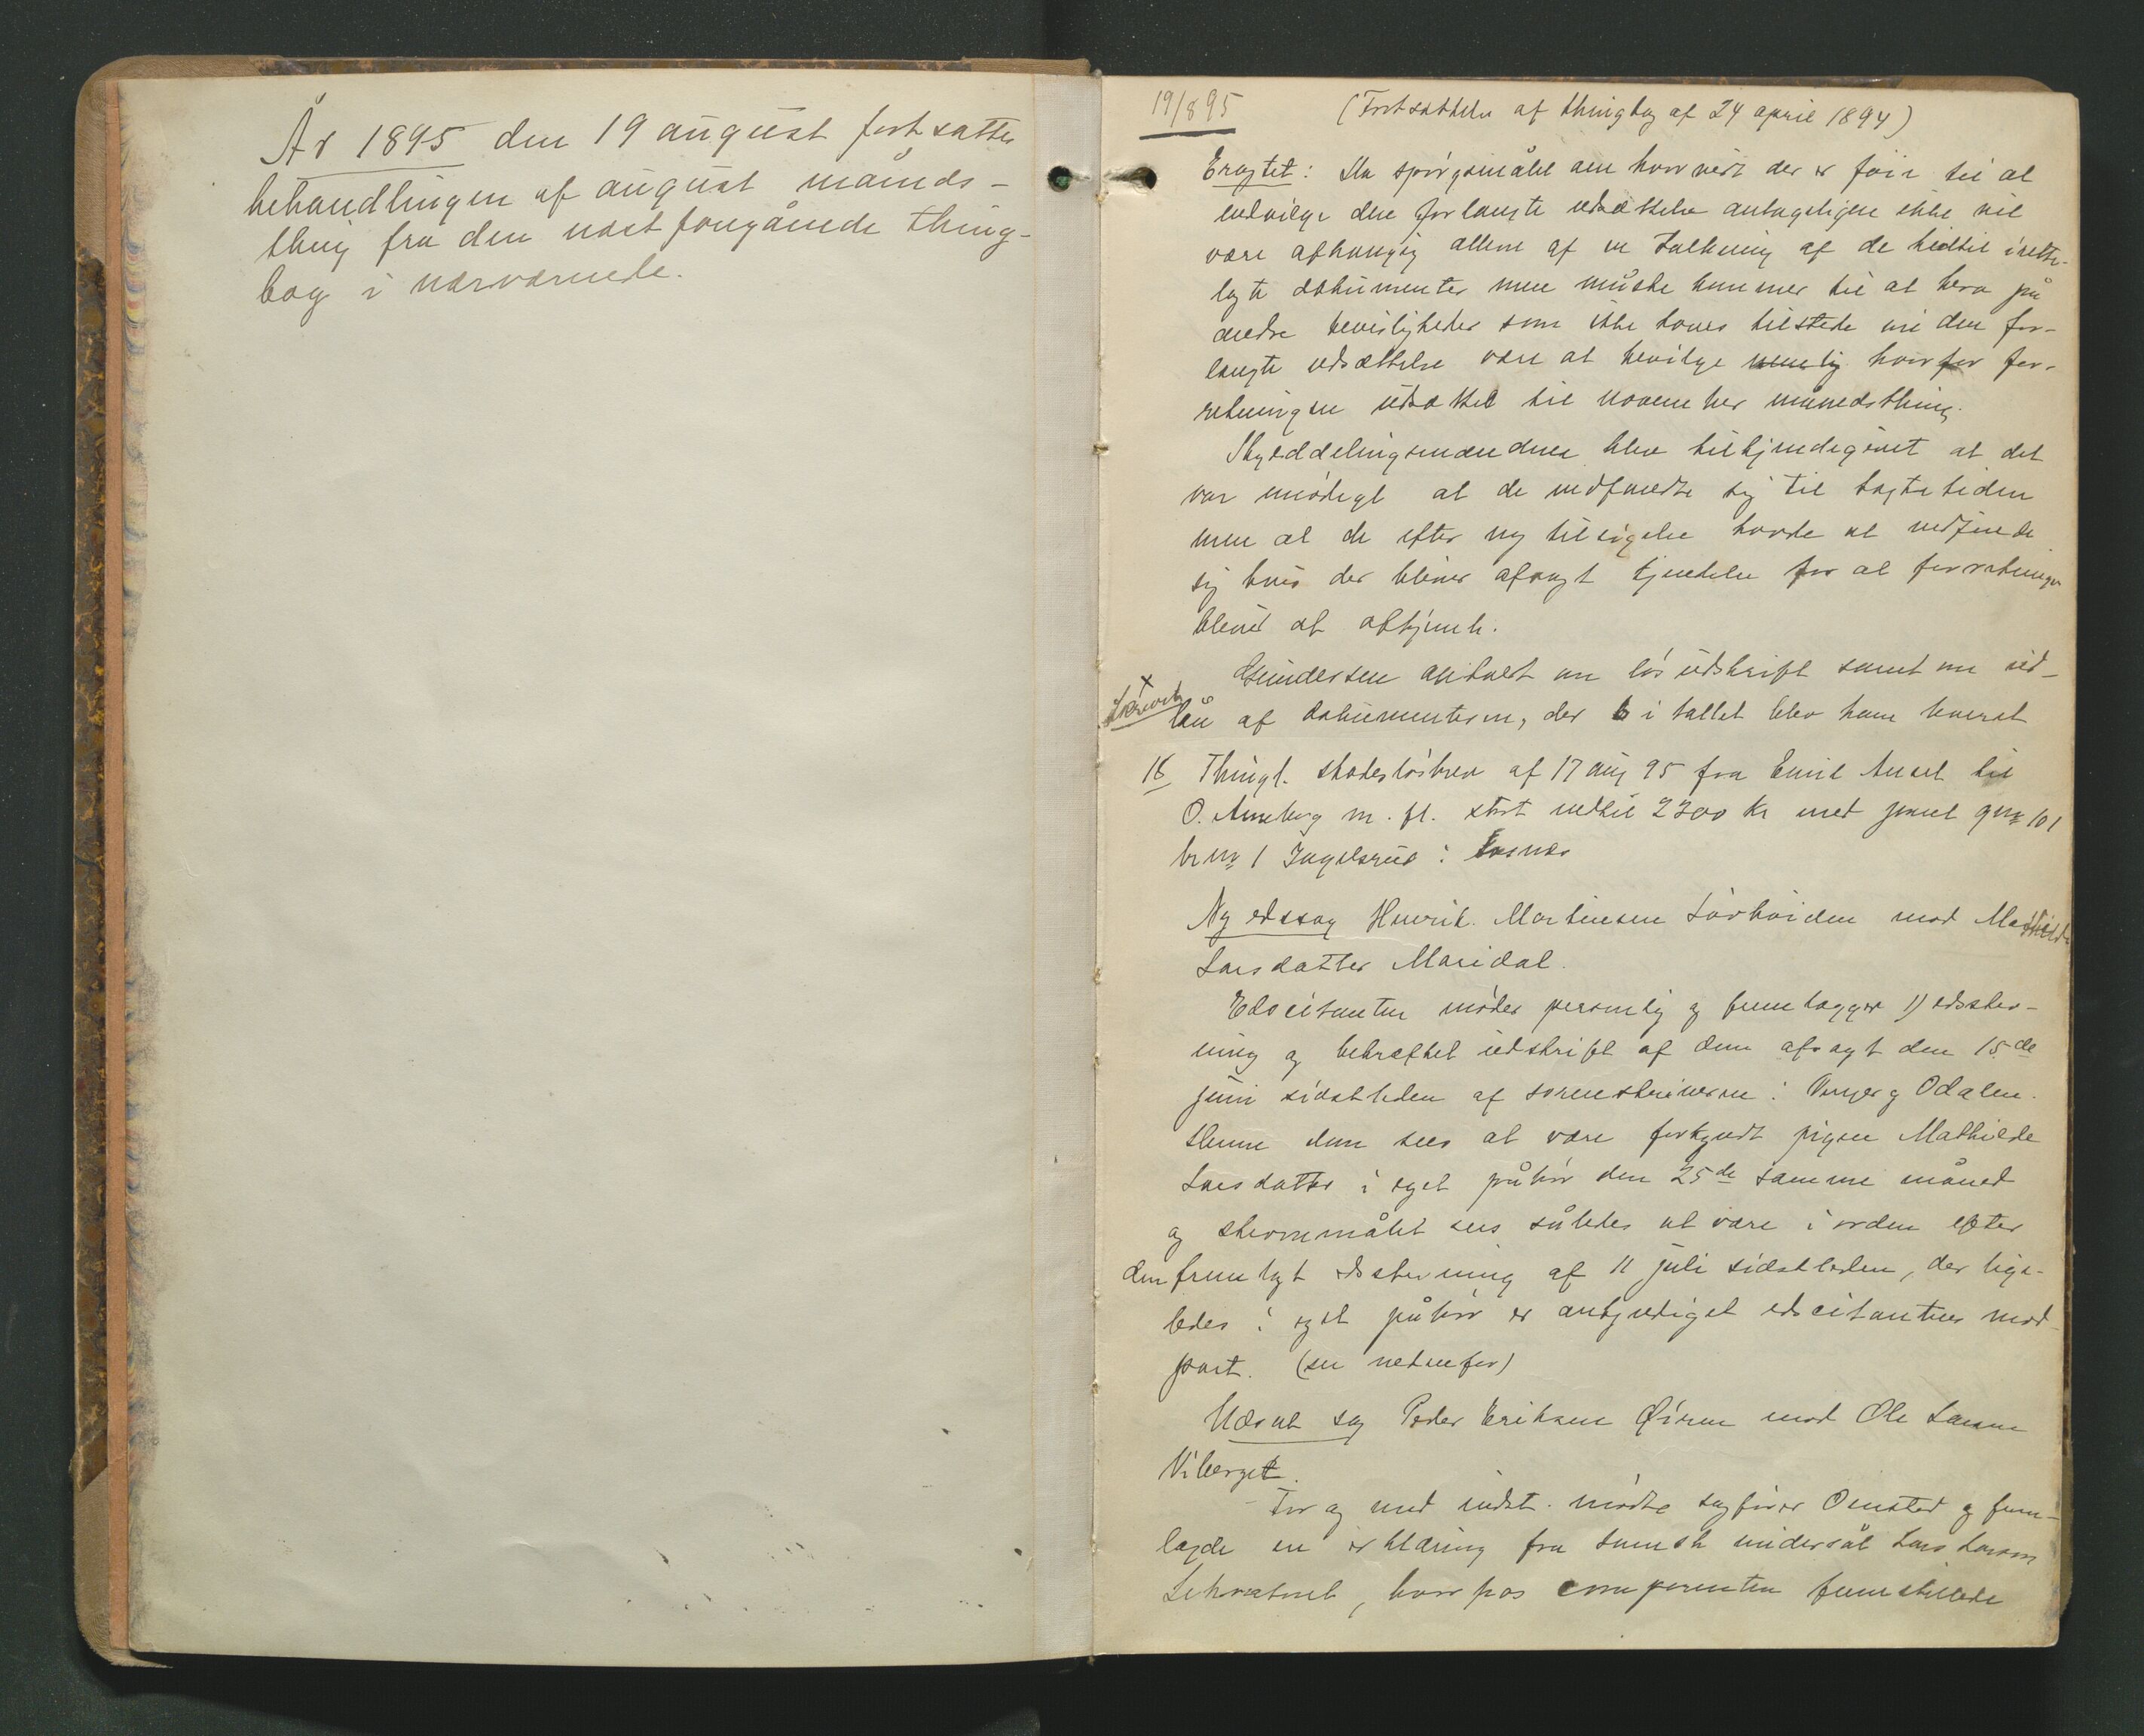 År 1895 den 19 august fortsattes
behandlingen af august måneds-
thing fra den næst forgående thing-
bog i nærværende.
19/8 95
(Fortsættelse af thingbog af 24 april 1894)
Eragtet: Da spørgsmålet om hvorvidt der er føie til at
indvilge den forlangte udsættelse antageligen ikke vil
være afhængig allene af en Tolkning af de hidtil irette-
lagte dokumenter men måske kommer til at bero på
andre bevisligheder som ikke haves tilstede vil den for-
langte udsættelse være at bevilge nemlig hvorfor for-
retningen udsættes til november månedsthing.
Skylddelingsmændene blev tilkjendegivet at det
var unødigt at de indfandt sig til tægtetiden
men at de efter ny tilsigelse havde at indfinde
sig hvis der bliver afsagt kjendelse for at forretningen
bliver at afhjemle.
Gundersen anholdt om løs udskrift samt om ud-
lån af dokumenterne, der 6 i tallet blev ham leveret
18 Thingl. skadesløsbrev af 17 aug 95 fra Emil til
O. Arneberg m. fl. stort indtil 2300 kr med pant gnr 101
brnr 1 Ingelsrud i
Ny edssag Henrik Martinsen Løvhøiden mod Mathilde
Larsdatter Maridal.
Edscitanten møder personlig og fremlægger 1) edsstev-
ning og bekræftet udskrift af dom afsagt den 15de
juni sidstleden af sorenskriveren i Vinger og Odalen.
Denne dom sees at være forkyndt pigen Mathilde
Larsdatter i eget påhør den 25de samme måned
og stevnemålet sees således at være i orden efter
den fremlagt edsstevning af 11 juli sidstleden, der lige-
ledes i eget påhør er ankyndiget edscitantens mod-
part. (se nedenfor)
Udsat sag Peder Eriksen Øieren mod Ole Larsen
Viberget.
For og med indst. mødte sagfører Omsted og frem-
lagde en erklæring fra svensk undersåt Lars Larson
hvorpaa comparenten fremstillede